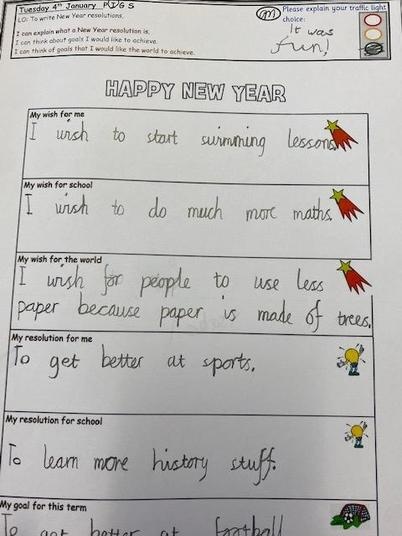 Tuesday 4th January P I G S
LO: To write New Year resolutions.
I can explain what a New Year resolution is.
I can think about goals I would like to achieve.
I can think of goals that I would like the world to achieve.
Please explain your traffic light
choice:
It was
fun!
HAPPY NEW YEAR
My wish for me
I wish to start swimming lessons.
My wish for school
I wish to do much more maths.
My wish for the world
I wish for people to use less
paper because paper is made of trees.
My resolution for me
To get better at sports.
My resolution for school
To learn more history stuff.
My goal for this term
To get better at football